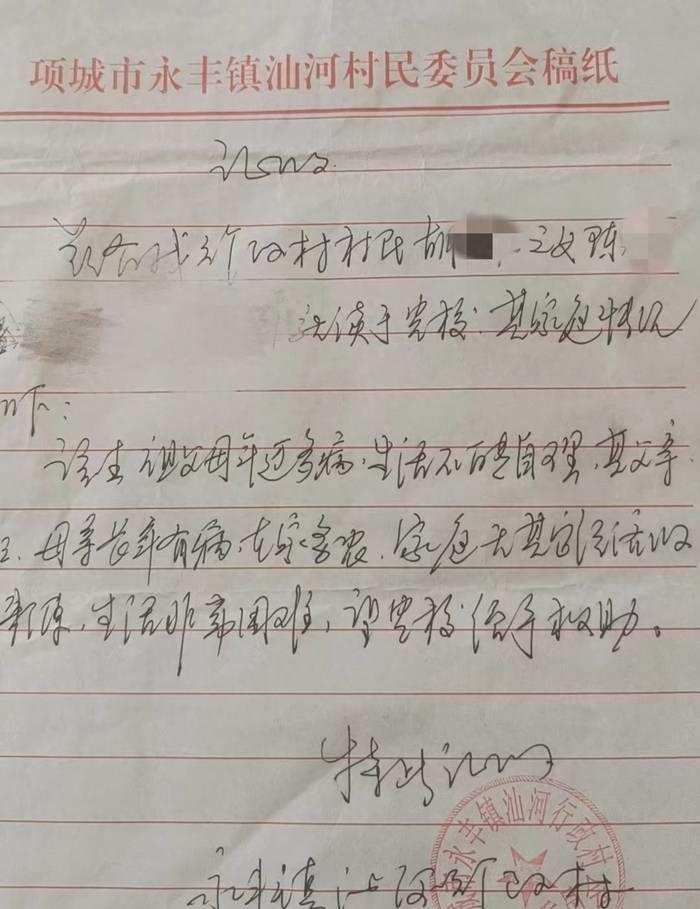 项城市永丰镇汕河村民委员会稿纸
证明
兹有我行政村村民胡 之女陈
就读于贵校.其家庭情况
如下：
该生祖父母年迈多病.生活不能自理.其父亲
母亲长年有病.在家务农.家庭无其它经济收
来源,生活非常困难,望贵校给予救助。
特此证明
永丰镇汕河行政村
永丰镇汕河行政村